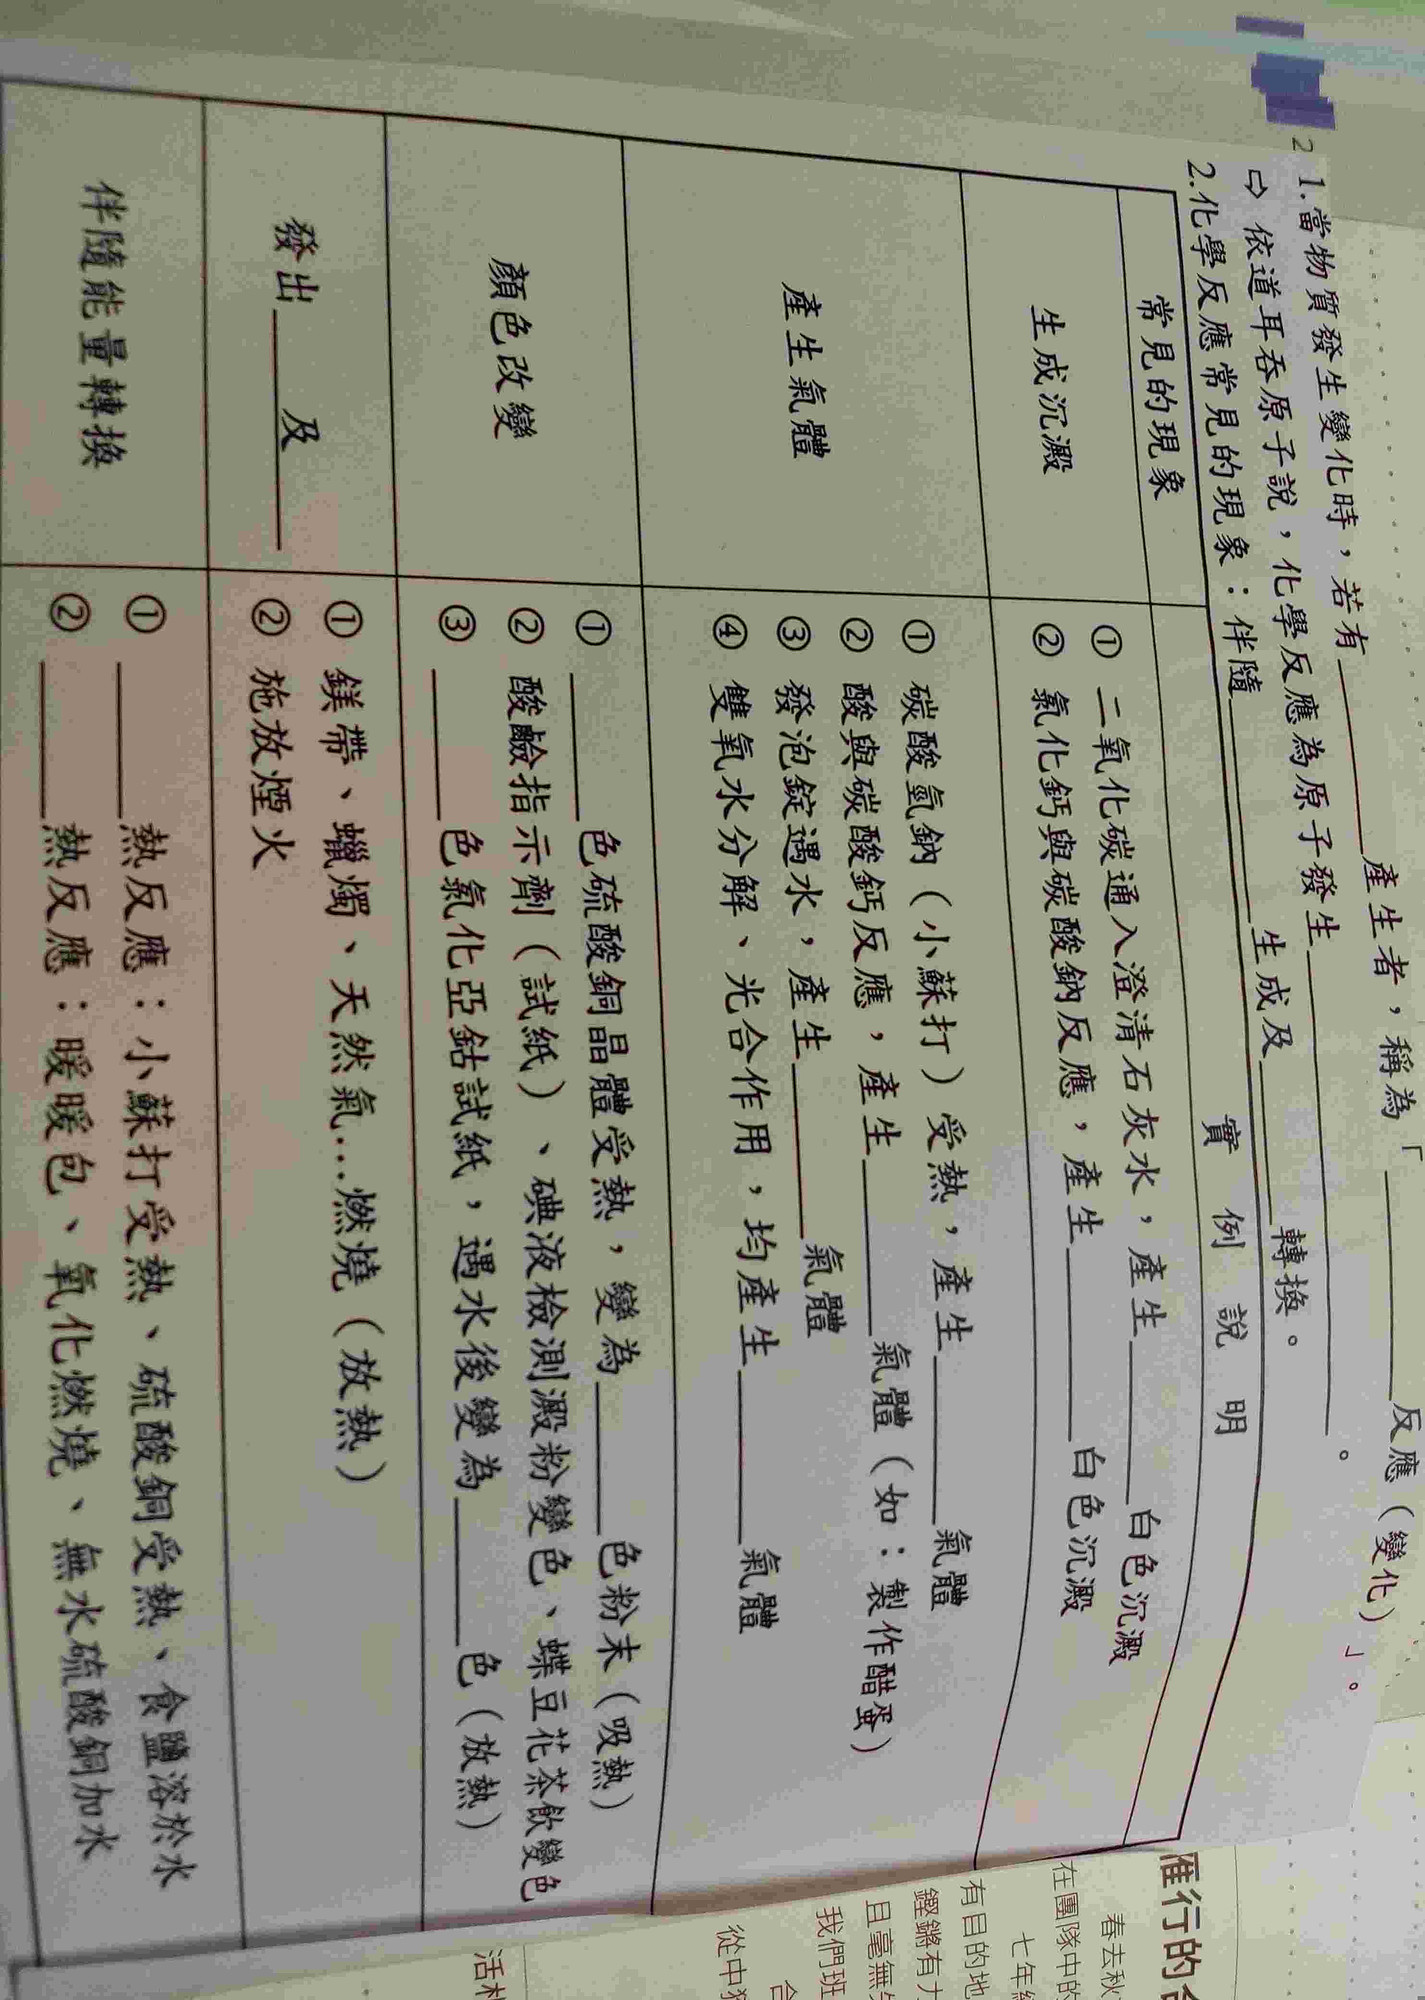 2
1.當物質發生變化時，若有________產生者，稱為「________反應（變化）」。
⇨ 依道耳吞原子說，化學反應為原子發生________。
2.化學反應常見的現象：伴隨________生成及________轉換。
常見的現象 實例說明
生成沉澱
① 二氧化碳通入澄清石灰水，產生________白色沉澱
② 氯化鈣與碳酸鈉反應，產生________白色沉澱
產生氣體
① 碳酸氫鈉（小蘇打）受熱，產生________氣體
② 酸與碳酸鈣反應，產生________氣體（如：製作醋蛋）
③ 發泡錠遇水，產生________氣體
④ 雙氧水分解、光合作用，均產生________氣體
顏色改變
① ________色硫酸銅晶體受熱，變為________色粉末（吸熱）
② 酸鹼指示劑（試紙）、碘液檢測澱粉變色、蝶豆花茶飲變色
③ ________色氯化亞鈷試紙，遇水後變為________色（放熱）
發出________及________
① 鎂帶、蠟燭、天然氣…燃燒（放熱）
② 施放煙火
伴隨能量轉換
① ________熱反應：小蘇打受熱、硫酸銅受熱、食鹽溶於水
② ________熱反應：暖暖包、氧化燃燒、無水硫酸銅加水
雁行的
春去秋
在團隊中的
七年級
有目的地
鏗鏘有力
且毫無
我們班
從中